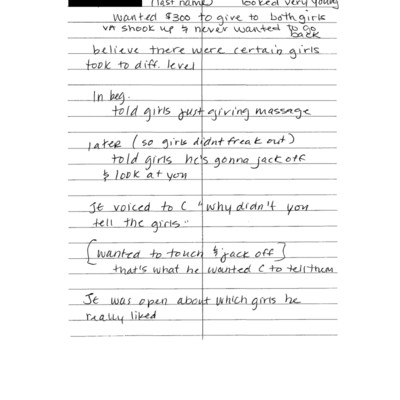 (last name) looked very young
wanted $300 to give to both girls
VA shook up & never wanted to go
back
believe there were certain girls
took to diff. level
In beg.
told girls just giving massage
later (so girls didnt freak out)
told girls he's gonna jack off
& look at you
JE voiced to C "why didn't you
tell the girls"
[wanted to touch & jack off]
that's what he wanted C to tell them
JE was open about which girls he
really liked